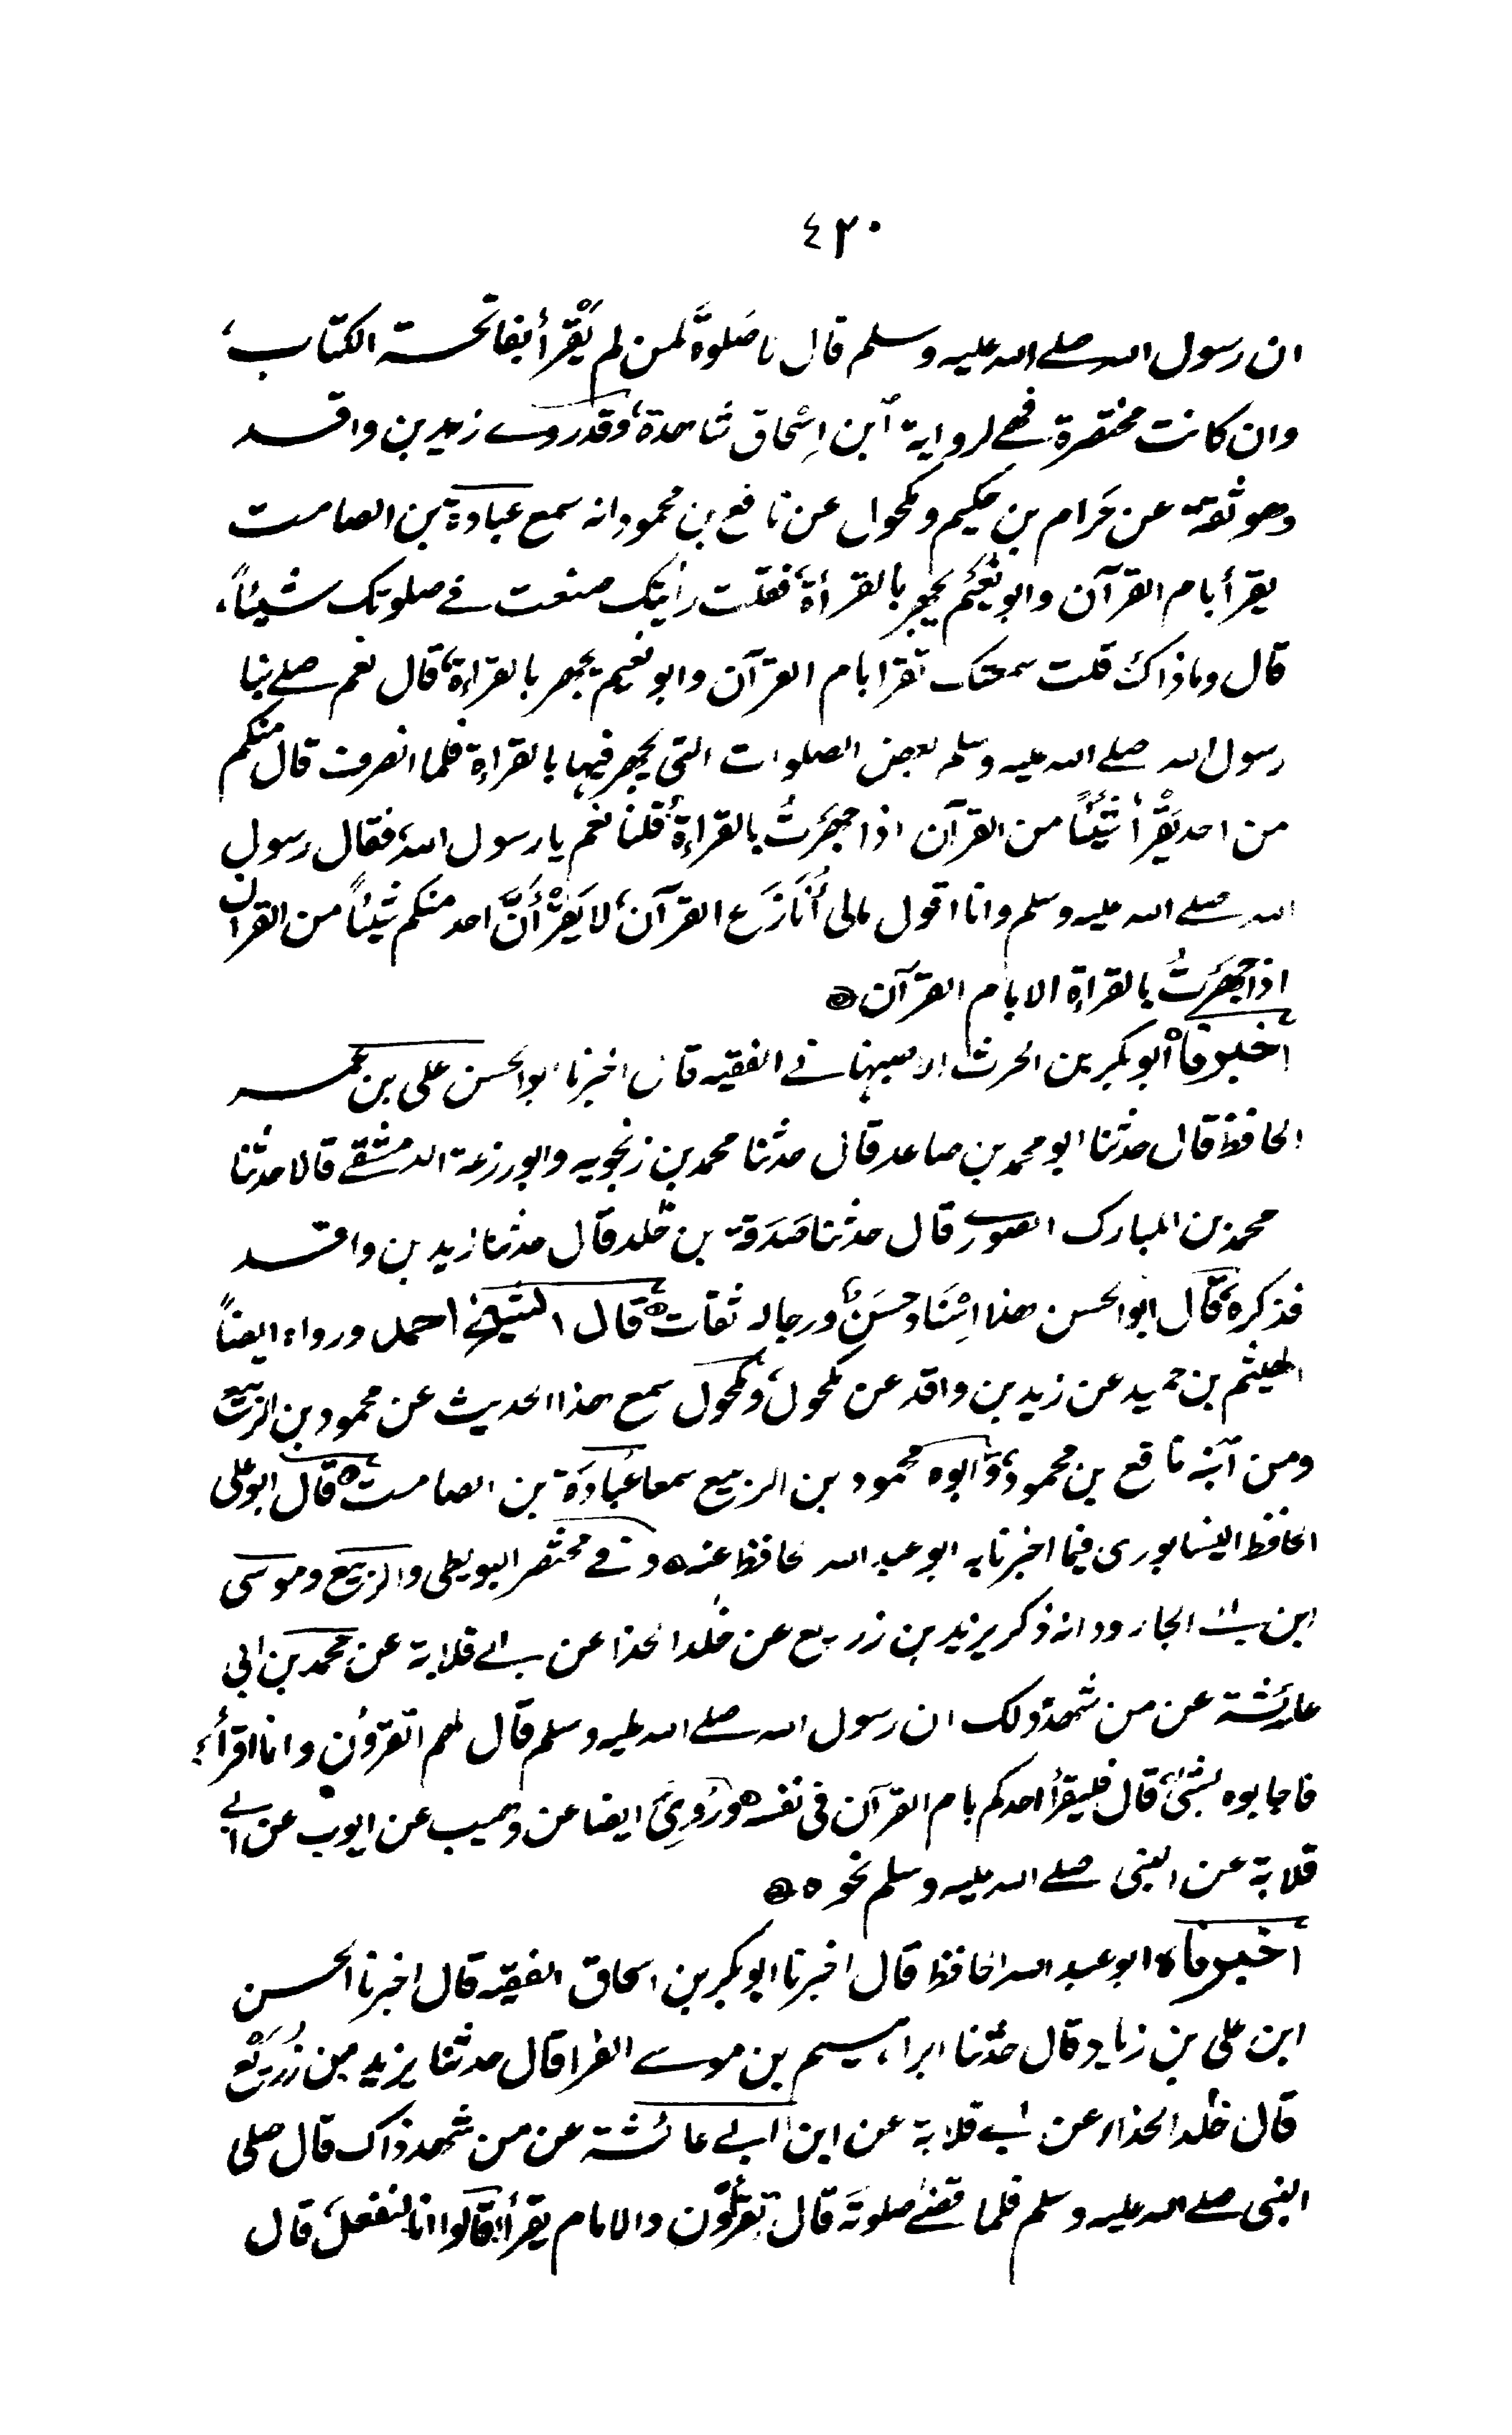 ٤٢٠
ان رسول الله صلے الله عليه وسلم قال لا صَلوةَ لمن لم يَقْرَأ بفاتحة الكتاب،
وان كانت مختصرة فهے لرواية ابن اِسْحاق شاهدة، وقد روے زيد بن واقد
وهو ثقة عن حَرام بن حكيم ومكحول عن نافع بن محمود انه سمع عبادة بن الصامت
يقرأ بام القرآن وابو نُعَيْم يجهر بالقرأة، فقلت رأيتك صنعت فے صلوتك شيئاً،
قال وما ذاك قلت سمعتك تقرا بام القرآن وابو نعيم يجهر بالقراءة، قال نعم صلے بنا
رسول الله صلے الله عليه وسلم بعض الصلوات التى يجهر فيها بالقراءة فلما انصرف قال منكم
من احد يَقْرأ شَيْئاً من القرآن اذا جهَرتُ بالقراءة، قلنا نعم يا رسول الله، فقال رسول
الله صلے الله عليه وسلم وانا اقول مالى أُنَازَع القرآن، لا يَقْرَأَنَّ احد منكم شيئاً من القرآن
اذا جهَرتُ بالقراءة الا بام القرآن
أخبرناه أبو بكر بن الحرث الاصبهانے الفقيه قال اخبرنا ابو الحسن على بن عمر
الحافظ قال حدثنا ابو محمد بن صاعد قال حدثنا محمد بن زنجويه وابو زرعة الدمشقے قالا حدثنا
محمد بن المبارك الصورے قال حدثنا صَدَقة بن خلد قال حدثنا زيد بن واقد
فذكره، قال ابو الحسن هذا اِسْنَاد حسَنٌ ورجاله ثقات ه قال الشيخ احمد ورواه ايضاً
الهيثم بن حميد عن زيد بن واقد عن مكحول، ومكحول سمع هذا الحديث عن محمود بن الربيع
ومن ابنه نافع بن محمود، وابوه محمود بن الربيع سمعا عُبَادَة بن الصامت ه قال ابو على
الحافظ النيسابورى فيما اخبرنا به ابو عبد الله الحافظ عنه ه و فے مختصر البويطى والربيع وموسى
ابن ابے الجارود انه ذكر يزيد بن زريع عن خلد الحذا عن ابے قلابة عن محمد بن ابى
عايشة عن من شهد ذلك ان رسول الله صلے الله عليه وسلم قال لهم اتقرؤن وانا اقرأ،
فاجابوه بشئ، قال فليقرأ احدكم بام القرآن فى نفسه ورُوِىَ ايضا عن وهيب عن ايوب عن ابے
قلابة عن النبى صلے الله عليه وسلم نحوه ه
أخبرناه ابو عبد الله الحافظ قال اخبرنا ابو بكر بن اسحاق الفقيه قال اخبرنا الحسن
ابن على بن زياد قال حدثنا ابراهيم بن موسے الفرا قال حدثنا يزيد بن زُرَيْع
قال خلد الحذاء عن ابے قلابة عن ابن ابے عائشة عن من شهد ذاك قال صلى
النبى صلے الله عليه وسلم فلما قضے صلوته قال تقرؤن والامام يقرأ، قالوا انا لنفعل، قال